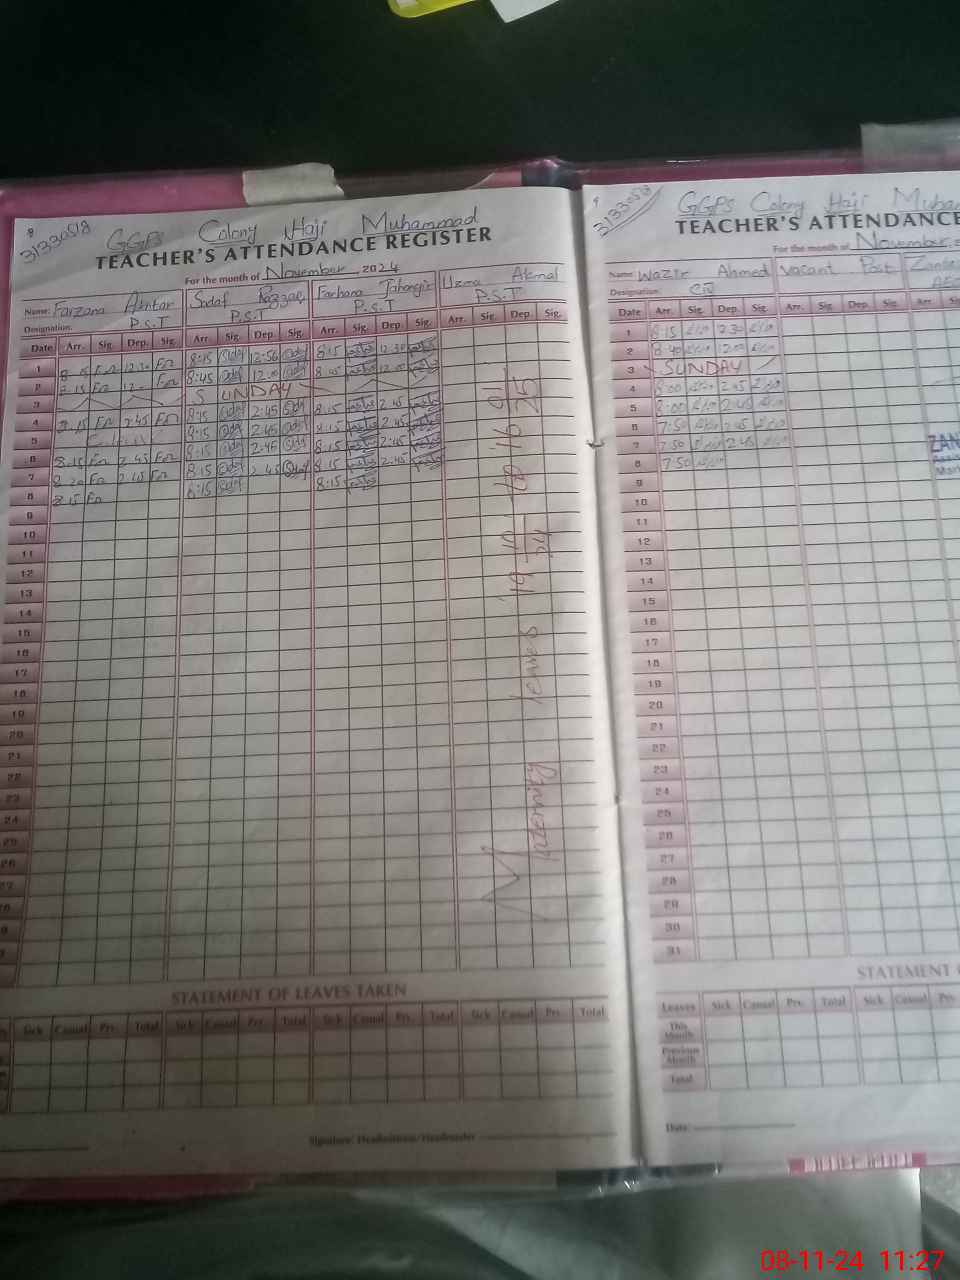 8
31330518
GGPS Colony Haji Muhammad
TEACHER'S ATTENDANCE REGISTER
For the month of November, 2024
Name: Farzana Akhtar Sadaf Razzaq Farhana Jahangir Uzma Akmal
Designation: P.S.T P.S.T P.S.T P.S.T
Date Arr. Sig. Dep. Sig. Arr. Sig. Dep. Sig. Arr. Sig. Dep. Sig. Arr. Sig. Dep. Sig.
1 8:15 Fa 12:30 Fa 8:15 12:56 8:15 12:30
2 8:15 Fa 12:00 Fa 8:45 12:00 8:45 12:00
3 SUNDAY
4 8:15 Fa 2:45 Fa 8:15 2:45 8:15 2:45
5 8:15 2:45 8:15 2:45
6 8:15 Fa 2:45 Fa 8:15 2:45 8:15 2:45
7 8:20 Fa 2:45 Fa 8:15 2:45 8:15 2:45
8 8:15 Fa 8:15 8:15
9
10
11
12
13
14
15
16
17
18
19
20
21
22
23
24
25
26
27
Maternity leaves 19-10-24 to 16-01-25
STATEMENT OF LEAVES TAKEN
Sick Casual Prv. Total Sick Casual Prv. Total Sick Casual Prv. Total Sick Casual Prv. Total
Signature: Headmaster/Headmaster
9
31330518
GGPS Colony Haji Muha
TEACHER'S ATTENDANCE
For the month of November,
Name: Wazir Ahmed Vacant Post
Designation: C-IV
Date Arr. Sig. Dep. Sig. Arr. Sig. Dep. Sig. Arr. Sig.
1 8:15 12:30
2 8:40 12:00
3 SUNDAY
4 8:00 2:45
5 8:00 2:45
6 7:50 2:45
7 7:50 2:45
8 7:50
9
10
11
12
13
14
15
16
17
18
19
20
21
22
23
24
25
26
27
28
29
30
31
ZAN
STATEMENT
Leaves Sick Casual Prv. Total Sick Casual Prv.
This Month
Previous Month
Total
Date:
08-11-24 11:27